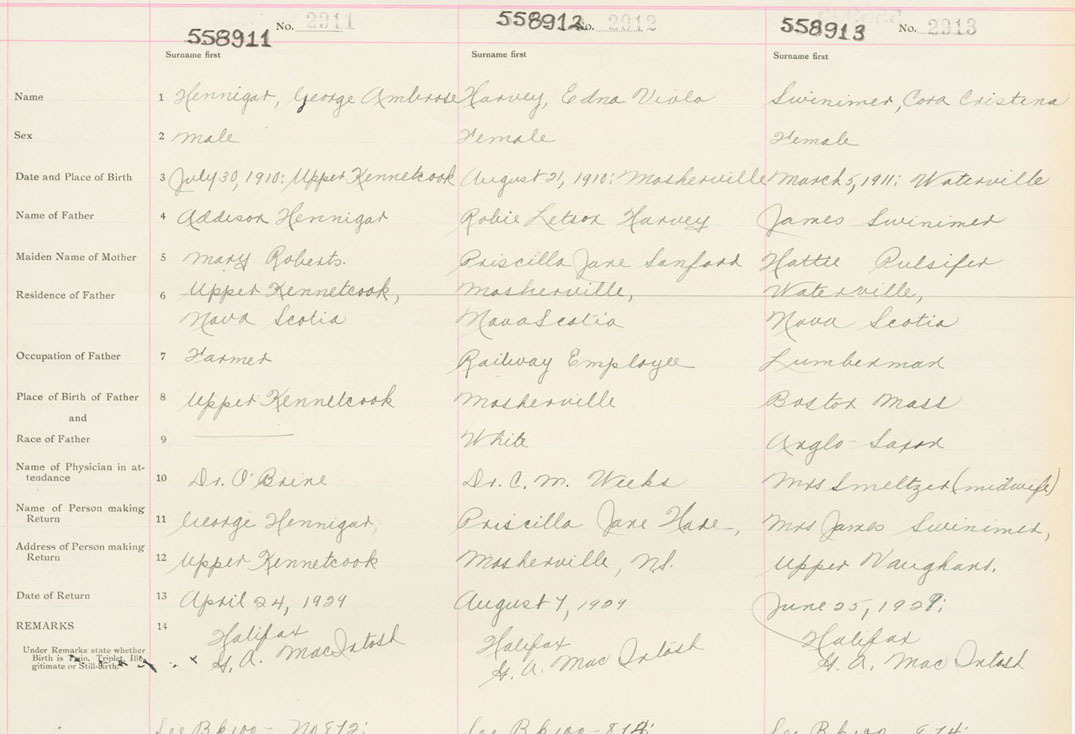 No. 2911 No. 2912 No. 2913
558911 558912 558913
Surname first Surname first Surname first
Name 1 Hennigar, George Ambrose Harvey, Edna Viola Swinimer, Cora Cristena
Sex 2 Male Female Female
Date and Place of Birth 3 July 30, 1910: Upper Kennetcook August 21, 1910: Mosherville March 5, 1911: Waterville
Name of Father 4 Addison Hennigar Robie Letson Harvey James Swinimer
Maiden Name of Mother 5 Mary Roberts. Priscilla Jane Sanford Hattie Pulsifer
Residence of Father 6 Upper Kennetcook, Mosherville, Waterville,
Nova Scotia Nova Scotia Nova Scotia
Occupation of Father 7 Farmer Railway Employee Lumberman
Place of Birth of Father 8 Upper Kennetcook Mosherville Boston Mass
and
Race of Father 9 White Anglo-Saxon
Name of Physician in at-
tendance 10 Dr. O'Brine Dr. C. M. Weeks Mrs Smeltzer (midwife)
Name of Person making
Return 11 George Hennigar, Priscilla Jane Mrs James Swinimer,
Address of Person making
Return 12 Upper Kennetcook Mosherville, N.S. Upper Vaughans.
Date of Return 13 April 24, 1929 August 7, 1929 June 25, 1929:
REMARKS 14 Halifax Halifax Halifax
G. A. MacIntosh G. A. Mac Intosh G. A. Mac Intosh
Under Remarks state whether
Birth is Twin, Triplet, Ille-
gitimate or Still-birth.
See Bk 100- No 872: See Bk 100- See Bk 100- 874: